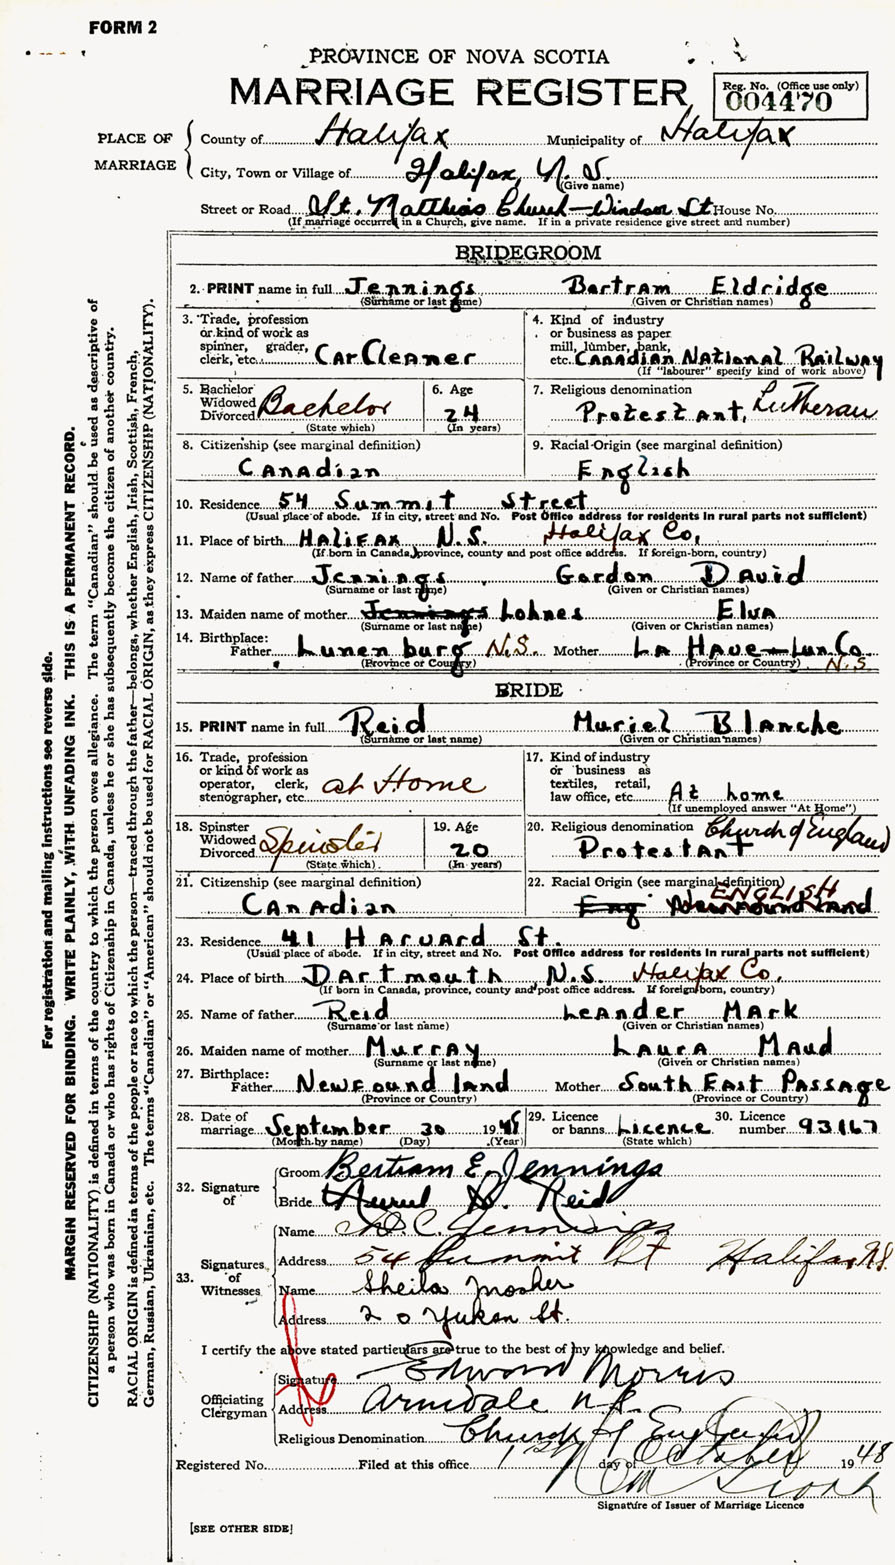 FORM 2
PROVINCE OF NOVA SCOTIA
MARRIAGE REGISTER
Reg. No. (Office use only)
004470
PLACE OF MARRIAGE
County of Halifax Municipality of Halifax
City, Town or Village of Halifax, N. S.
(Give name)
Street or Road St. Matthias Church - Windsor St House No.
(If marriage occurred in a Church, give name. If in a private residence give street and number)
BRIDEGROOM
2. PRINT name in full Jennings Bertram Eldridge
(Surname or last name) (Given or Christian names)
3. Trade, profession or kind of work as spinner, grader, clerk, etc. Car Cleaner
4. Kind of industry or business as paper mill, lumber, bank, etc. Canadian National Railway
(If "labourer" specify kind of work above)
5. Bachelor Widowed Divorced Bachelor
(State which)
6. Age 24
(In years)
7. Religious denomination Protestant, Lutheran
8. Citizenship (see marginal definition) Canadian
9. Racial Origin (see marginal definition) English
10. Residence 54 Summit Street
(Usual place of abode. If in city, street and No. Post Office address for residents in rural parts not sufficient)
11. Place of birth Halifax N.S. Halifax Co,
(If born in Canada, province, county and post office address. If foreign-born, country)
12. Name of father Jennings, Gordon David
(Surname or last name) (Given or Christian names)
13. Maiden name of mother Jennings Lohnes Elva
(Surname or last name) (Given or Christian names)
14. Birthplace: Father Lunenburg N.S. Mother La Have - Lun. Co N.S
(Province or Country) (Province or Country)
BRIDE
15. PRINT name in full Reid Muriel Blanche
(Surname or last name) (Given or Christian names)
16. Trade, profession or kind of work as operator, clerk, stenographer, etc. at Home
17. Kind of industry or business as textiles, retail, law office, etc. At home
(If unemployed answer "At Home")
18. Spinster Widowed Divorced Spinster
(State which)
19. Age 20
(In years)
20. Religious denomination Church of England
Protestant
21. Citizenship (see marginal definition) Canadian
22. Racial Origin (see marginal definition) ENGLISH
Eng Newfoundland
23. Residence 41 Harvard St.
(Usual place of abode. If in city, street and No. Post Office address for residents in rural parts not sufficient)
24. Place of birth Dartmouth, N.S. Halifax Co,
(If born in Canada, province, county and post office address. If foreign born, country)
25. Name of father Reid Leander Mark
(Surname or last name) (Given or Christian names)
26. Maiden name of mother Murray Laura Maud
(Surname or last name) (Given or Christian names)
27. Birthplace: Father Newfoundland Mother South East Passage
(Province or Country) (Province or Country)
28. Date of marriage September 30 1948
(Month by name) (Day) (Year)
29. Licence or banns Licence
(State which)
30. Licence number 93167
32. Signature of
Groom Bertram E. Jennings
Bride Muriel B. Reid
33. Signatures of Witnesses
Name Jennings
Address 54 Summit St Halifax N.S.
Name Sheila Mosher
Address 20 Yukon St.
I certify the above stated particulars are true to the best of my knowledge and belief.
Officiating Clergyman
Signature Edward Morris
Address Armdale N.S.
Religious Denomination Church of England
Registered No. Filed at this office 1st day of October 1948
Signature of Issuer of Marriage Licence
[SEE OTHER SIDE]
For registration and mailing instructions see reverse side.
MARGIN RESERVED FOR BINDING. WRITE PLAINLY, WITH UNFADING INK. THIS IS A PERMANENT RECORD.
CITIZENSHIP (NATIONALITY) is defined in terms of the country to which the person owes allegiance. The term "Canadian" should be used as descriptive of
a person who was born in Canada or who has rights of Citizenship in Canada, unless he or she has subsequently become the citizen of another country.
RACIAL ORIGIN is defined in terms of the people or race to which the person—traced through the father—belongs, whether English, Irish, Scottish, French,
German, Russian, Ukrainian, etc. The terms "Canadian" or "American" should not be used for RACIAL ORIGIN, as they express CITIZENSHIP (NATIONALITY).